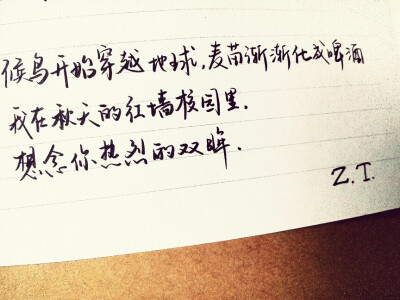 候鸟开始穿越地球，麦苗渐渐化成啤酒
我在秋天的红墙校园里．
想念你热烈的双眸．
Z.T.